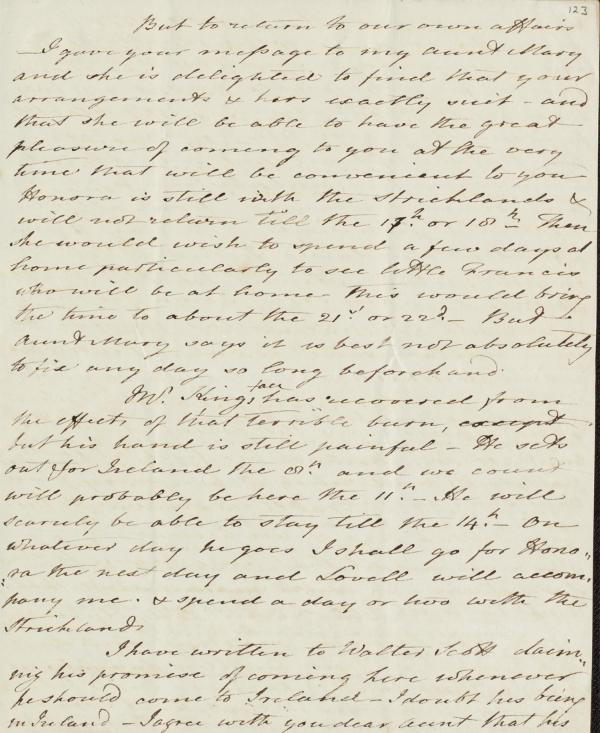 123
But to return to our own affairs
– I gave your message to my aunt Mary
and she is delighted to find that your
arrangements & hers exactly suit – and
that she will be able to have the great
pleasure of coming to you at the very
time that will be convenient to you
Honora is still with the Stricklands &
will not return till the 17th. or 18th. Then
she would wish to spend a few days at
home particularly to see little Francis
who will be at home This would bring
the time to about the 21st or 22d. – But
Aunt Mary says it is best not absolutely
to fix any day so long beforehand
face
Mr. King's has recovered from
the effects of that terrible burn, except
but his hand is still painful – He sets
out for Ireland the 8th. and we count
will probably be here the 11th. – He will
scarcely be able to stay till the 14th. – On
whatever day he goes I shall go for Hono"
"ra the next day and Lovell will accom"
"pany me. & spend a day or two with the
Stricklands
I have written to Walter Scott claim"
ing his promise of coming here whenever
he should come to Ireland – I doubt his being
in Ireland – I agree with you dear aunt that his